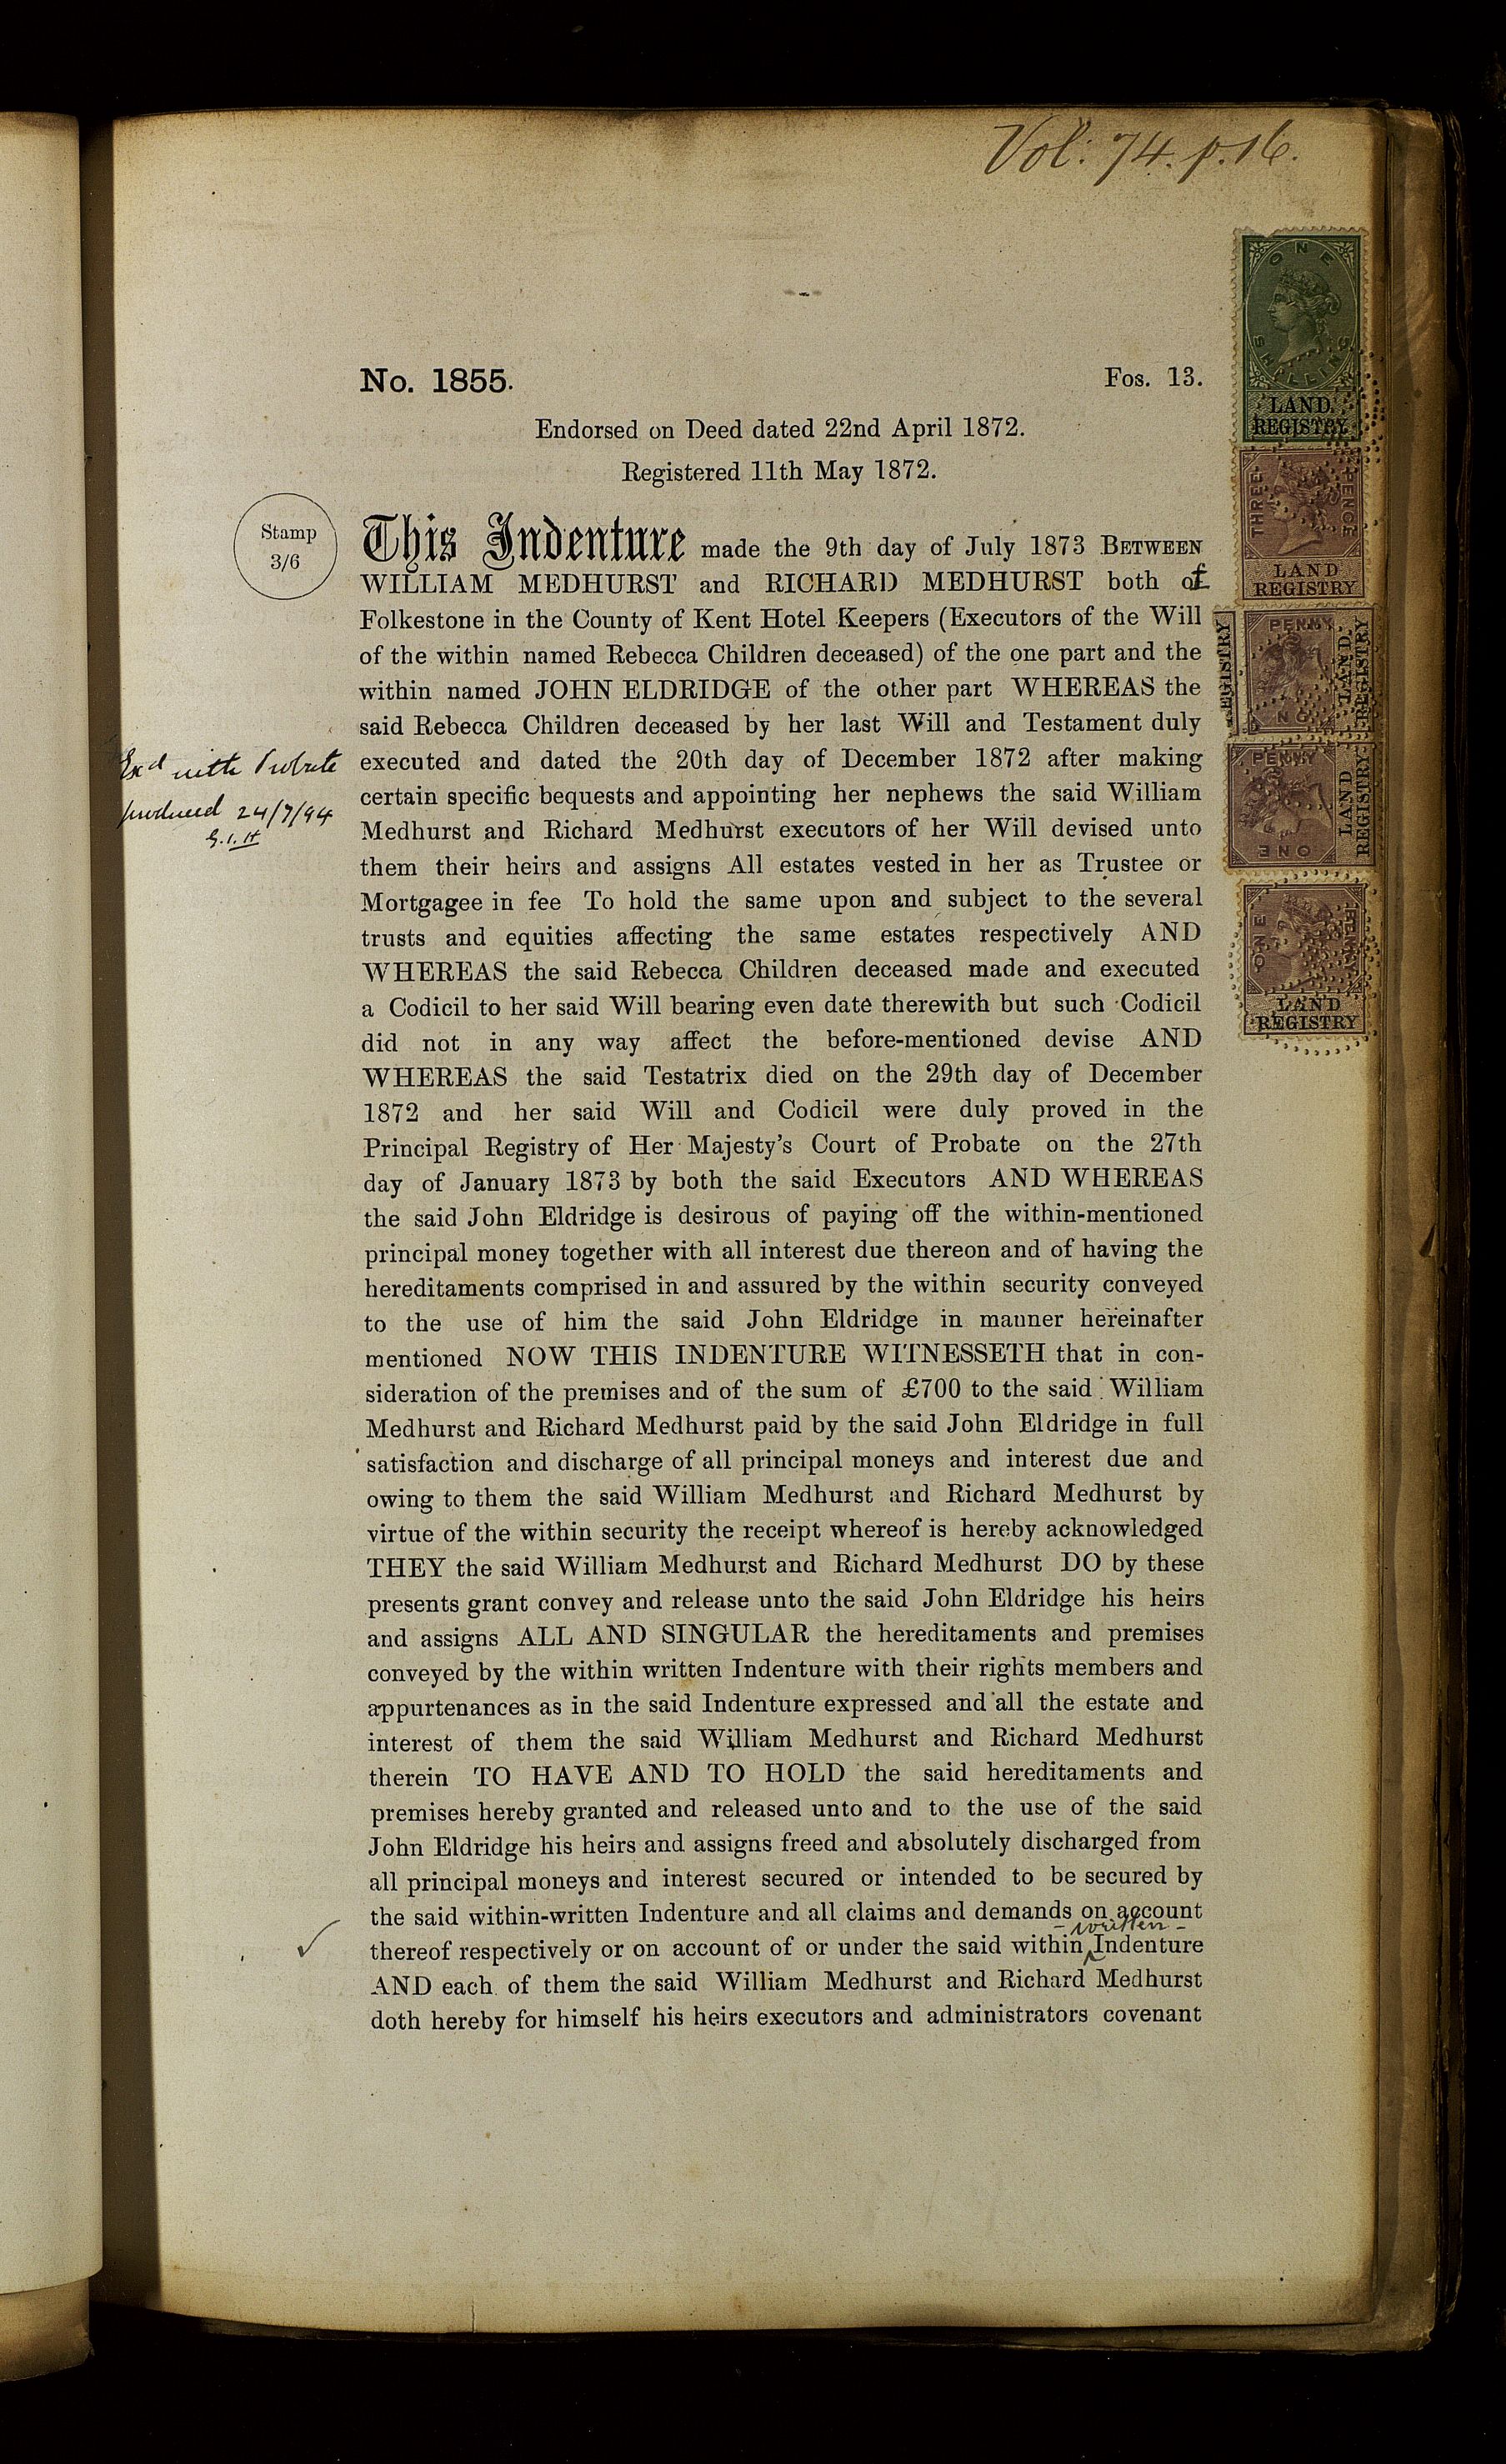 Vol: 74. p. 16.
No. 1855.
Fos. 13.
Endorsed on Deed dated 22nd April 1872.
Registered 11th May 1872.
Stamp
3/6
This Indenture made the 9th day of July 1873 BETWEEN
WILLIAM MEDHURST and RICHARD MEDHURST both of
Folkestone in the County of Kent Hotel Keepers (Executors of the Will
of the within named Rebecca Children deceased) of the one part and the
within named JOHN ELDRIDGE of the other part WHEREAS the
said Rebecca Children deceased by her last Will and Testament duly
executed and dated the 20th day of December 1872 after making
certain specific bequests and appointing her nephews the said William
Medhurst and Richard Medhurst executors of her Will devised unto
them their heirs and assigns All estates vested in her as Trustee or
Mortgagee in fee To hold the same upon and subject to the several
trusts and equities affecting the same estates respectively AND
WHEREAS the said Rebecca Children deceased made and executed
a Codicil to her said Will bearing even date therewith but such Codicil
did not in any way affect the before-mentioned devise AND
WHEREAS the said Testatrix died on the 29th day of December
1872 and her said Will and Codicil were duly proved in the
Principal Registry of Her Majesty's Court of Probate on the 27th
day of January 1873 by both the said Executors AND WHEREAS
the said John Eldridge is desirous of paying off the within-mentioned
principal money together with all interest due thereon and of having the
hereditaments comprised in and assured by the within security conveyed
to the use of him the said John Eldridge in manner hereinafter
mentioned NOW THIS INDENTURE WITNESSETH that in con-
sideration of the premises and of the sum of £700 to the said William
Medhurst and Richard Medhurst paid by the said John Eldridge in full
satisfaction and discharge of all principal moneys and interest due and
owing to them the said William Medhurst and Richard Medhurst by
virtue of the within security the receipt whereof is hereby acknowledged
THEY the said William Medhurst and Richard Medhurst DO by these
presents grant convey and release unto the said John Eldridge his heirs
and assigns ALL AND SINGULAR the hereditaments and premises
conveyed by the within written Indenture with their rights members and
appurtenances as in the said Indenture expressed and all the estate and
interest of them the said William Medhurst and Richard Medhurst
therein TO HAVE AND TO HOLD the said hereditaments and
premises hereby granted and released unto and to the use of the said
John Eldridge his heirs and assigns freed and absolutely discharged from
all principal moneys and interest secured or intended to be secured by
the said within-written Indenture and all claims and demands on account
- written -
thereof respectively or on account of or under the said within Indenture
AND each of them the said William Medhurst and Richard Medhurst
doth hereby for himself his heirs executors and administrators covenant
Exd with Probate
produced 24/7/94
ONE
SHILLING
LAND
REGISTRY
THREE PENCE
LAND
REGISTRY
EGISTRY
PENNY
LAND
REGISTRY
ONE
PENNY
LAND
REGISTRY
ONE PENNY
LAND
REGISTRY